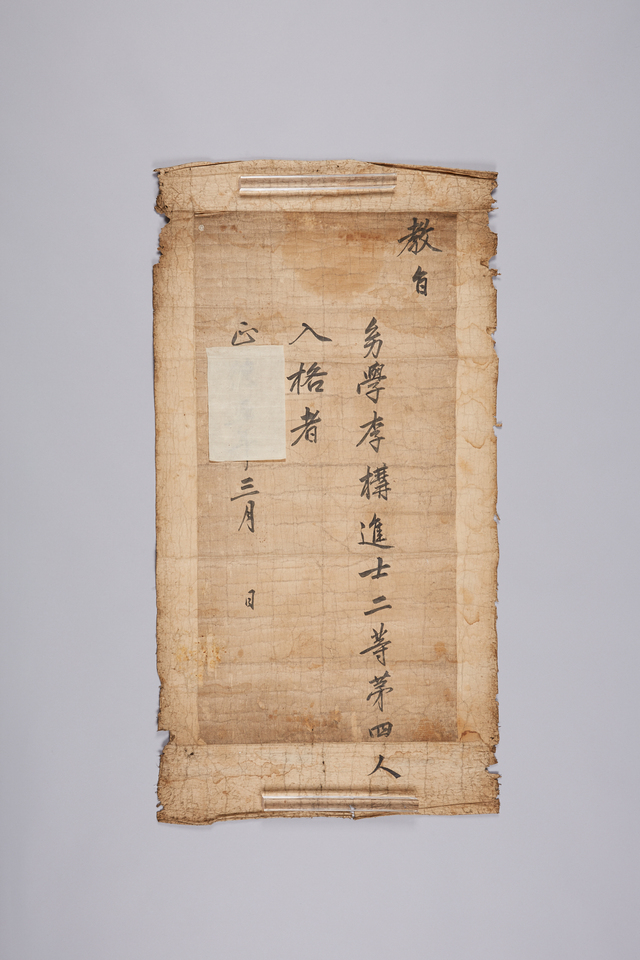 教旨
幼學李構進士二等第四人
入格者
正
三月 日